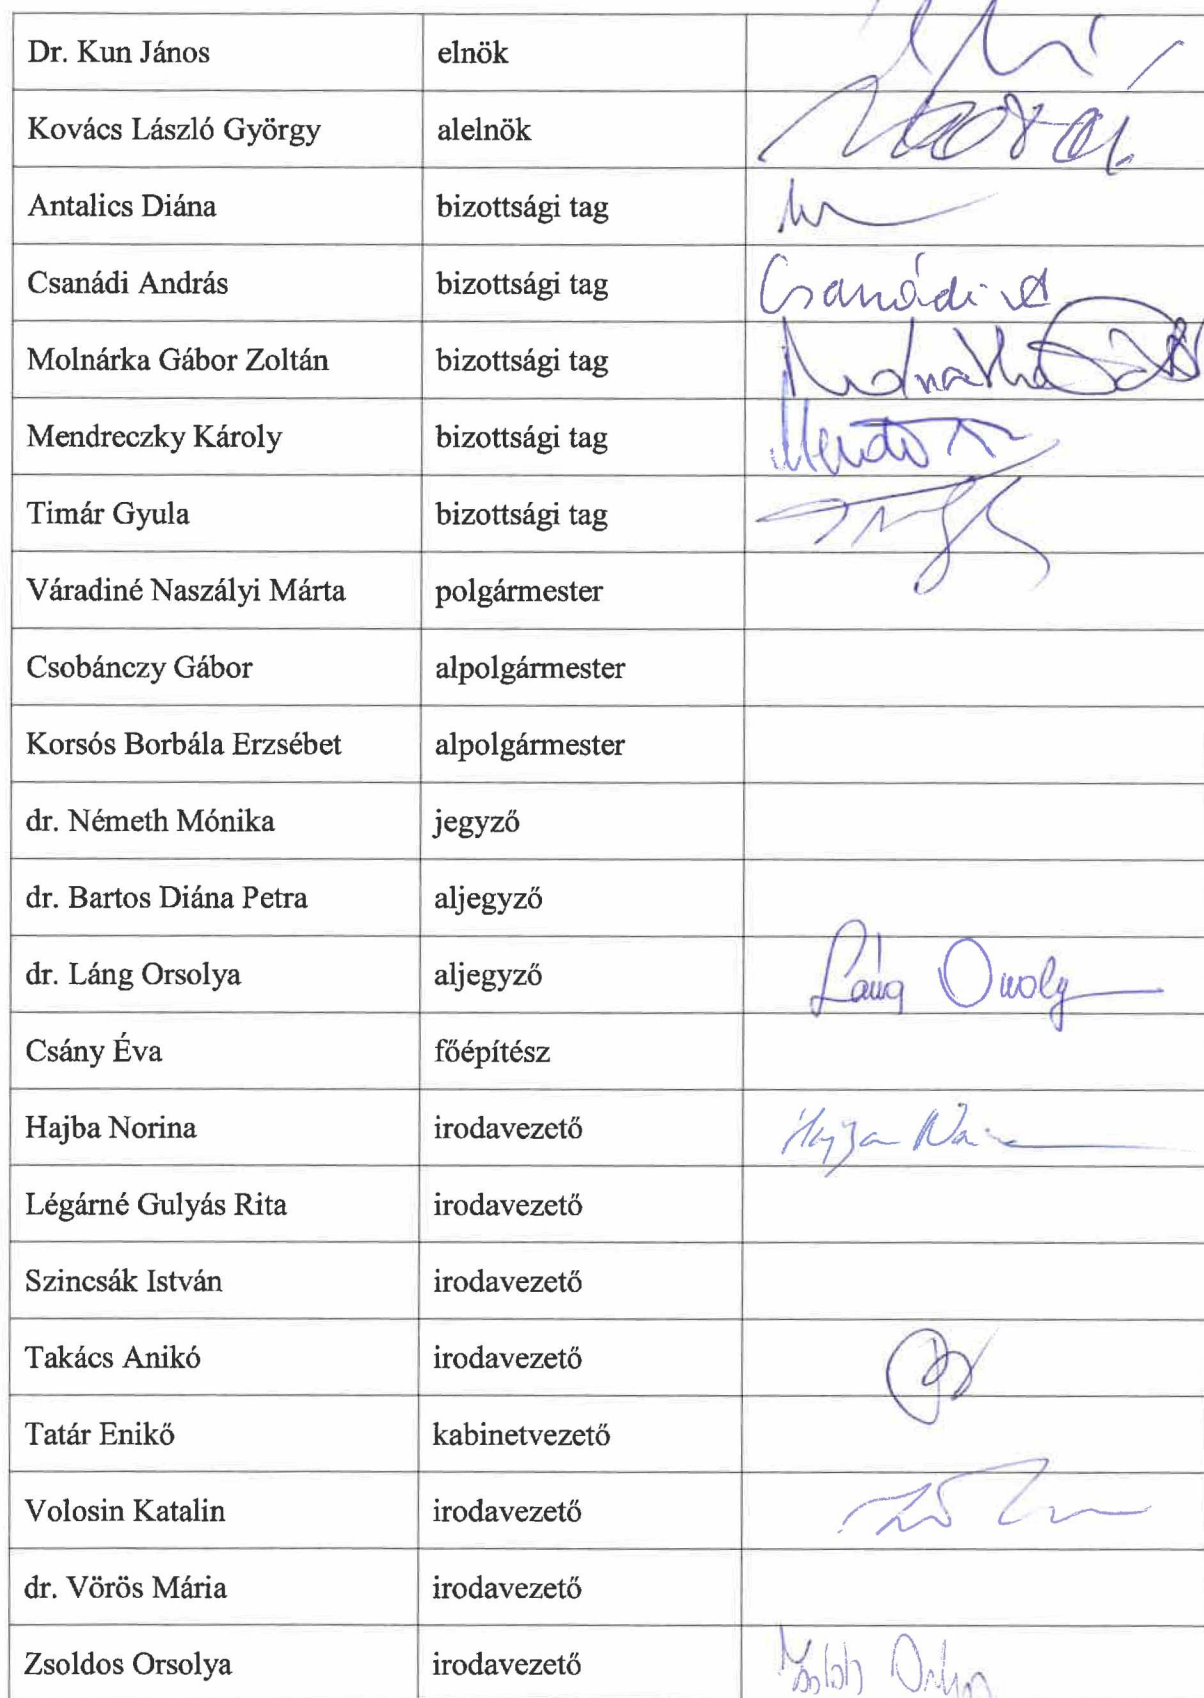 Dr. Kun János elnök
Kovács László György alelnök
Antalics Diána bizottsági tag
Csanádi András bizottsági tag Csanádi A
Molnárka Gábor Zoltán bizottsági tag
Mendreczky Károly bizottsági tag
Timár Gyula bizottsági tag
Váradiné Naszályi Márta polgármester
Csobánczy Gábor alpolgármester
Korsós Borbála Erzsébet alpolgármester
dr. Németh Mónika jegyző
dr. Bartos Diána Petra aljegyző
dr. Láng Orsolya aljegyző Láng Orsolya
Csány Éva főépítész
Hajba Norina irodavezető
Légárné Gulyás Rita irodavezető
Szincsák István irodavezető
Takács Anikó irodavezető
Tatár Enikő kabinetvezető
Volosin Katalin irodavezető
dr. Vörös Mária irodavezető
Zsoldos Orsolya irodavezető